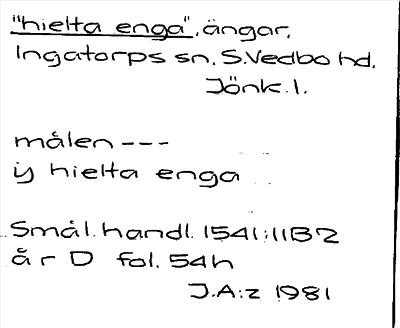 "hielta enga", ängar,
Ingatorps sn. S.Vedbo hd.
Jönk.l.
målen ---
ÿ hielta enga
Smål.handl. 1541:11B2
år D fol. 54h
J.A:z 1981